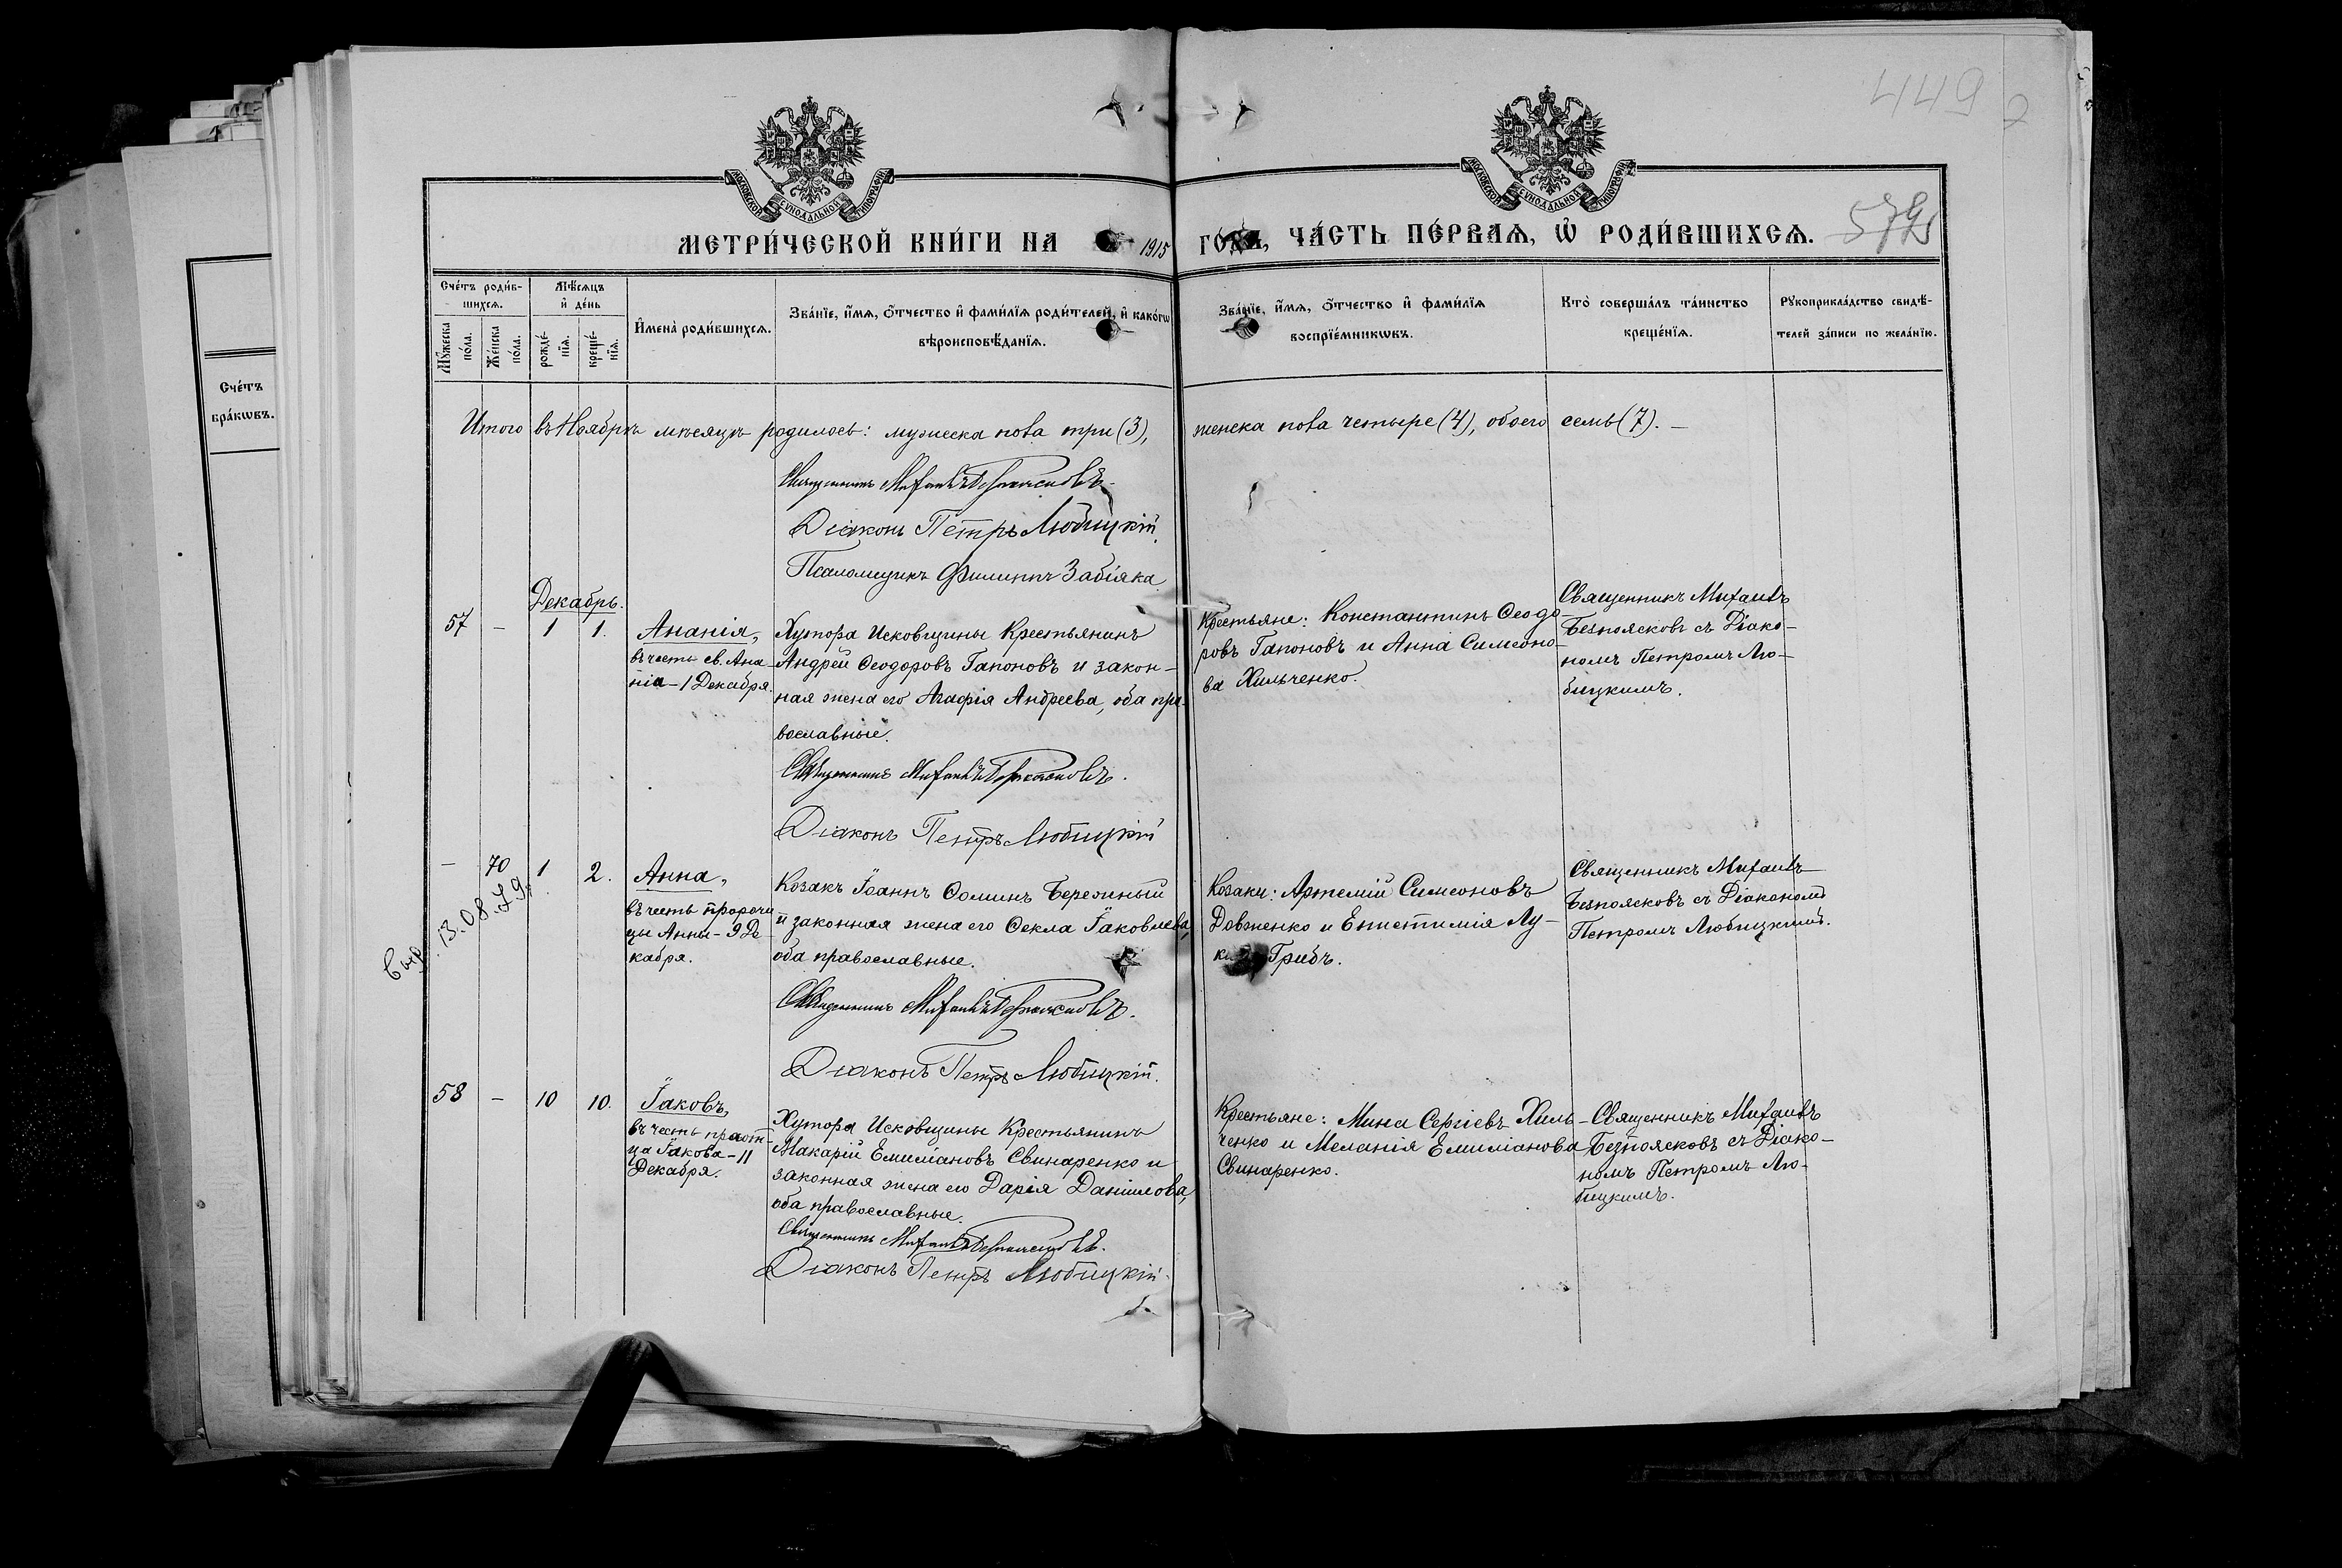 449
579
МОСКОВСКОЙ СѴНОДАЛЬНОЙ ТИПОГРАФІИ
МОСКОВСКОЙ СѴНОДАЛЬНОЙ ТИПОГРАФІИ
МЕТРИ́ЧЕСКОЙ КНИ́ГИ НА 1915 ГО́ДА, ЧА́СТЬ ПЕ́РВАѦ, Ѡ҆ РОДИ́ВШИХСѦ.
Сче́тъ
бра́кѡвъ.
Сче́тъ роди́в-
шихсѧ.
Мꙋ́жеска
по́ла.
Же́нска
по́ла.
Мѣ́сѧцъ
и҆ де́нь
рожде́-
нїѧ.
креще́-
нїѧ.
И҆мена̀ роди́вшихсѧ.
Зва́нїе, и҆́мѧ, ѻ҆́тчество и҆ фами́лїѧ роди́телей, и҆ како́гѡ
вѣроисповѣ́данїѧ.
Зва́нїе, и҆́мѧ, ѻ҆́тчество и҆ фами́лїѧ
воспрїе́мникѡвъ.
Кто̀ соверша́лъ та́инство
креще́нїѧ.
Рꙋкоприкла́дство свидѣ́-
телей за́писи по жела́нїю.
Итого въ Ноябрѣ мѣсяцѣ родилось: мужеска пола три (3), женска пола четыре (4), обоего семь (7). –
Священникъ Михаилъ Безпоясковъ.
Діаконъ Петръ Любицкій.
Псаломщикъ Филиппъ Забіяка
Декабрь.
57 – 1 1.
Ананія,
въ честь св. Ана-
нія – 1 Декабря.
Хутора Исковщины Крестьянинъ
Андрей Ѳеодоровъ Гапоновъ и закон-
ная жена его Агафія Андреева, оба пра-
вославные.
Священникъ Михаилъ Безпоясковъ.
Діаконъ Петръ Любицкій
Крестьяне: Константинъ Ѳеодо-
ровъ Гапоновъ и Анна Симеоно-
ва Хильченко.
Священникъ Михаилъ
Безпоясковъ съ Діако-
номъ Петромъ Лю-
бицкимъ.
– 70 1 2.
13.08.79
Анна,
въ честь пророчи-
цы Анны – 9 Де-
кабря.
Козакъ Іоаннъ Ѳоминъ Бережный
и законная жена его Ѳекла Іаковлева,
оба православные.
Священникъ Михаилъ Безпоясковъ.
Діаконъ Петръ Любицкій.
Козаки: Артемій Симеоновъ
Довженко и Епистимія Лу-
Грибъ.
Священникъ Михаилъ
Безпоясковъ съ Діакономъ
Петромъ Любицкимъ.
58 – 10 10.
Іаковъ,
въ честь праот-
ца Іакова – 11
Декабря.
Хутора Исковщины Крестьянинъ
Макарій Емиліановъ Свинаренко и
законная жена его Дарія Даніилова,
оба православные.
Священникъ Михаилъ Безпоясковъ.
Діаконъ Петръ Любицкій.
Крестьяне: Мина Сергіевъ Хиль-
ченко и Меланія Емиліанова
Свинаренко.
Священникъ Михаилъ
Безпоясковъ съ Діако-
номъ Петромъ Лю-
бицкимъ.